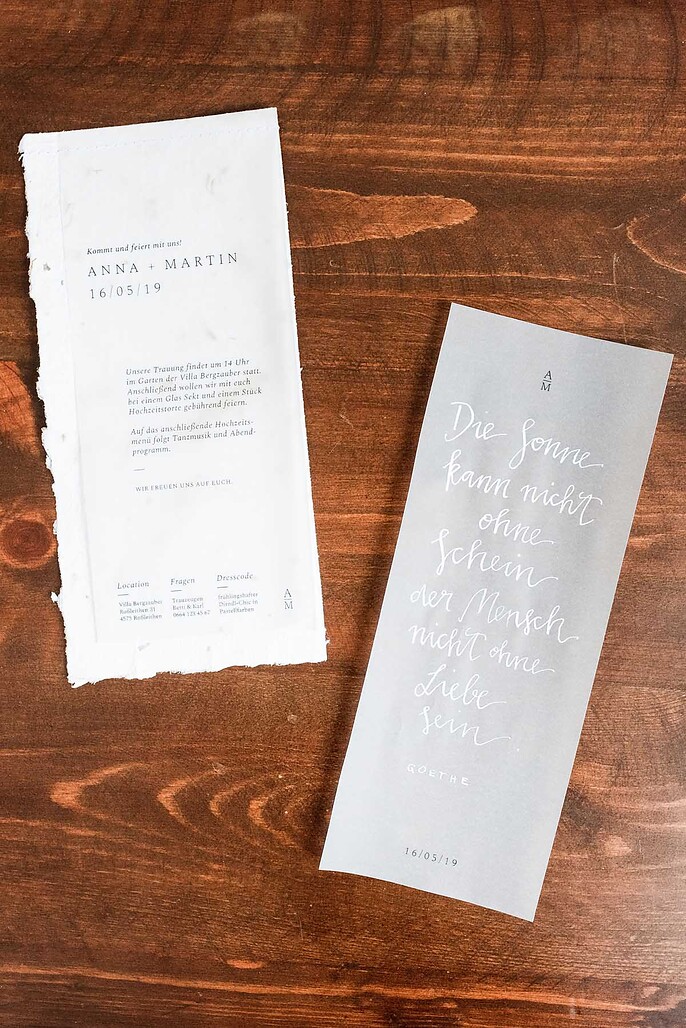 Kommt und feiert mit uns!
ANNA + MARTIN
16/05/19
Unsere Trauung findet um 14 Uhr
im Garten der Villa Bergzauber statt.
Anschließend wollen wir mit euch
bei einem Glas Sekt und einem Stück
Hochzeitstorte gebührend feiern.
Auf das anschließende Hochzeits-
menü folgt Tanzmusik und Abend-
programm.
WIR FREUEN UNS AUF EUCH.
Location
Villa Bergzauber
Roßleithen 31
4575 Roßleithen
Fragen
Trauzeugen
Betti & Karl
0664 123 45 67
Dresscode
Frühlingshafter
Dirndl-Chic in
Pastellfarben
A
M
A
M
Die Sonne
kann nicht
ohne
Schein
der Mensch
nicht ohne
Liebe
sein.
GOETHE
16/05/19